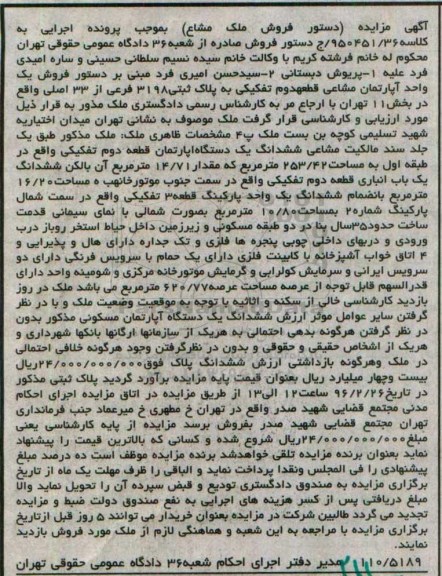 آگهی مزایده (دستور فروش ملک مشاع) بموجب پرونده اجرایی به
کلاسه۹۵۰۴۵۱/۳۶/ج دستور فروش صادره از شعبه۳۶ دادگاه عمومی حقوقی تهران
محکوم له خانم فرشته کریم با وکالت خانم سیده نسیم سلطانی حسینی و ساره امیدی
فرد علیه ۱-پریوش دبستانی ۲-سیدحسن امیری فرد مبنی بر دستور فروش یک
واحد آپارتمان مشاعی قطعهدوم تفکیکی به پلاک ثبتی۳۱۹۸ فرعی از ۳۳ اصلی واقع
در بخش۱۱ تهران با ارجاع مر به کارشناس رسمی دادگستری ملک مذور به قرار ذیل
مورد ارزیابی و کارشناسی قرار گرفت ملک موصوف به نشانی تهران میدان اختیاریه
شهید تسلیمی کوچه بن بست ملک پ۴ مشخصات ظاهری ملک: ملک مذکور طبق یک
جلد سند مالکیت مشاعی ششدانگ یک دستگاهاپارتمان قطعه دوم تفکیکی واقع در
طبقه اول به مساحت۲۵۳/۴۲ مترمربع که مقدار۱۴/۷۱ مترمربع آن بالکن ششدانگ
یک باب انباری قطعه دوم تفکیکی واقع در سمت جنوب موتورخانهب ه مساحت۱۶/۲۰
مترمربع بانضمام ششدانگ یک واحد پارکینگ قطعه۳ تفکیکی واقع در سمت شمال
پارکینگ شماره۲ بمساحت۱۰/۸۰ مترمربع بصورت شمالی با نمای سیمانی قدمت
ساخت حدود۳۵سال بنا در دو طبقه مسکونی و زیرزمین داخل حیاط استخر روباز درب
ورودی و دربهای داخلی چوبی پنجره ها فلزی و تک جداره دارای هال و پذیرایی و
۴ اتاق خواب آشپزخانه با کابینت فلزی دارای یک حمام با سرویس فرنگی دارای دو
سرویس ایرانی و سرمایش کولرابی و گرمایش موتورخانه مرکزی و شومینه واحد دارای
قدرالسهم قابل توجه از عرصه مساحت عرصه۶۲۰/۷۷ مترمربع می باشد ملک در روز
بازدید کارشناسی خالی از سکنه و اثاثیه با توجه به موقعیت وضعیت ملک و با در نظر
گرفتن سایر عوامل موثر ارزش ششدانگ یک دستگاه آپارتمان مسکونی مذکور بدون
در نظر گرفتن هرگونه بدهی احتمالی به هریک از سازمانها ارگانها بانکها شهرداری و
هریک از اشخاص حقیقی و حقوقی و بدون در نظرگرفتن وجود هرگونه خلافی احتمالی
در ملک وهرگونه بازداشتی ارزش ششدانگ پلاک فوق۲۴/۰۰۰/۰۰۰/۰۰۰ریال
بیست وچهار میلیارد ریال بعنوان قیمت پایه مزایده برآورد گردید پلاک ثبتی مذکور
در تاریخ۹۶/۲/۲۶ ساعت۱۲ الی۱۳ از طریق مزایده در اتاق مزایده اجرای احکام
مدنی مجتمع قضایی شهید صدر واقع در تهران خ مطهری خ میرعماد جنب فرمانداری
تهران مجتمع قضایی شهید صدر بفروش برسد مزایده از پایه کارشناسی یعنی
مبلغ۲۴/۰۰۰/۰۰۰/۰۰۰ریال شروع شده و کسانی که بالاترین قیمت را پیشنهاد
نماید بعنوان برنده مزایده تلقی خواهدشد برنده مزایده موظف است ده درصد مبلغ
پیشنهادی را فی المجلس ونقدا پرداخت نماید و الباقی را ظرف مهلت یک ماه از تاریخ
برگزاری مزایده به صندوق دادگستری تودیع و قبض سپرده آن را تحویل نماید والا
مبلغ دریافتی پس از کسر هزینه های اجرایی به نفع صندوق دولت ضبط و مزایده
تجدید می گردد طالبین شرکت در مزایده بعنوان خریدار می توانند ۵ روز قبل ازتاریخ
برگزاری مزایده با مراجعه به این شعبه و هماهنگی لازم از ملک مورد فروش بازدید
نمایند.
۱۱۰/۵۱۸۹ مدیر دفتر اجرای احکام شعبه۳۶ دادگاه عمومی حقوقی تهران